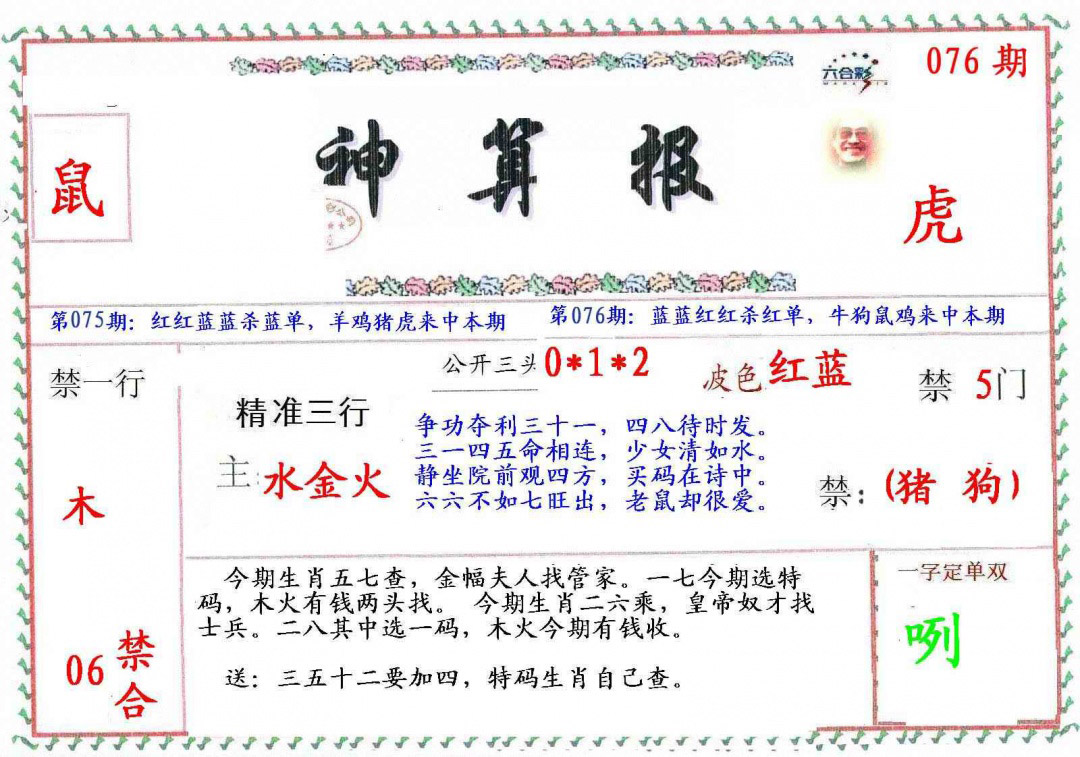 076期
六合彩
鼠
神算报
虎
第075期：红红蓝蓝杀蓝单，羊鸡猪虎来中本期
第076期：蓝蓝红红杀红单，牛狗鼠鸡来中本期
禁一行
公开三头 0*1*2
波色 红蓝
禁 5门
精准三行
主：水金火
争功夺利三十一，四八待时发。
三一四五命相连，少女清如水。
静坐院前观四方，买码在诗中。
六六不如七旺出，老鼠却很爱。
禁：(猪 狗)
木
今期生肖五七查，金幅夫人找管家。一七今期选特
码，木火有钱两头找。 今期生肖二六乘，皇帝奴才找
士兵。二八其中选一码，木火今期有钱收。
送：三五十二要加四，特码生肖自己查。
一字定单双
咧
06 禁合